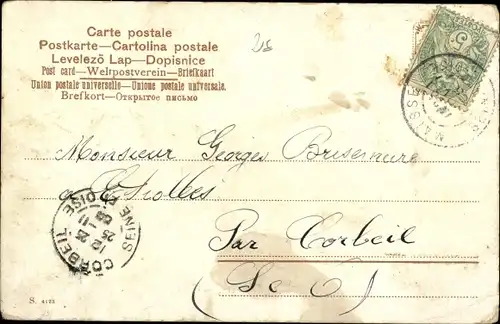 Carte postale
Postkarte—Cartolina postale
Levelező Lap—Dopisnice
Post card—Weltpostverein—Briefkaart
Union postale universelle—Unione postale universale.
Brefkort—Открытое письмо
Monsieur Georges Brisemure
a Etiolles
Par Corbeil
(Se O)
CORBEIL
SEINE ET OISE
12 25
25 -11
S. 4123
5